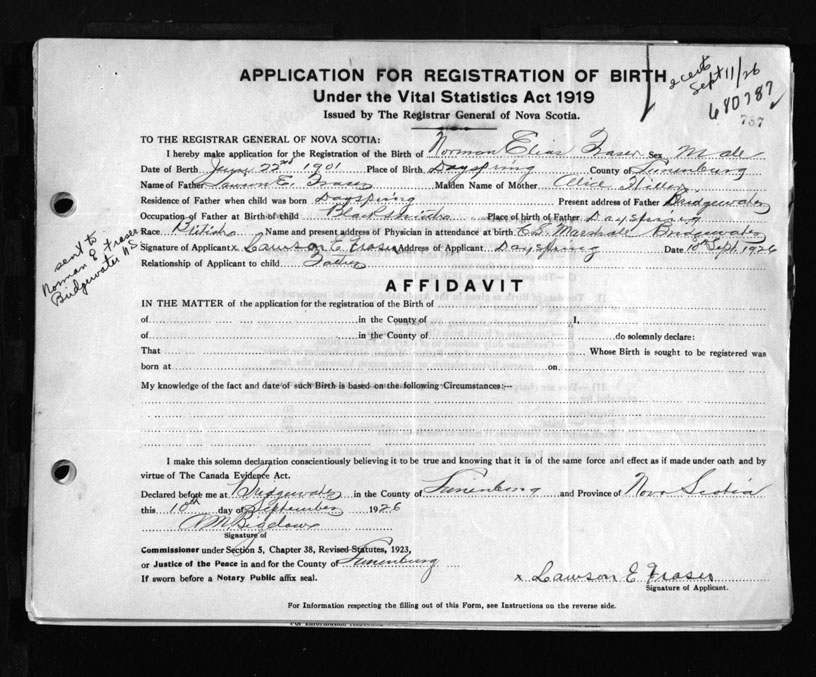 APPLICATION FOR REGISTRATION OF BIRTH
Under the Vital Statistics Act 1919
Issued by The Registrar General of Nova Scotia.
2 certs
Sept 11/26
680787
787
TO THE REGISTRAR GENERAL OF NOVA SCOTIA:
I hereby make application for the Registration of the Birth of Norman Elias Fraser Sex Male
Date of Birth 22nd 1901 Place of Birth Dayspring County of Lunenburg
Name of Father Lawson E. Fraser Maiden Name of Mother Alice
Residence of Father when child was born Dayspring Present address of Father Bridgewater
Occupation of Father at Birth of child Blacksmith Place of birth of Father Dayspring
Race British Name and present address of Physician in attendance at birth Marshall Bridgewater
Signature of Applicant x Lawson E Fraser Address of Applicant Dayspring Date 10th Sept. 1926
Relationship of Applicant to child Father
sent to
Norman E Fraser
Bridgewater N.S
AFFIDAVIT
IN THE MATTER of the application for the registration of the Birth of
of in the County of I,
of in the County of do solemnly declare:
That Whose Birth is sought to be registered was
born at on
My knowledge of the fact and date of such Birth is based on the following Circumstances:—
I make this solemn declaration conscientiously believing it to be true and knowing that it is of the same force and effect as if made under oath and by
virtue of The Canada Evidence Act.
Declared before me at Bridgewater in the County of Lunenburg and Province of Nova Scotia
this 10th day of September 1926
Signature of
Commissioner under Section 5, Chapter 38, Revised Statutes, 1923,
or Justice of the Peace in and for the County of Lunenburg
If sworn before a Notary Public affix seal.
x Lawson E Fraser
Signature of Applicant.
For Information respecting the filling out of this Form, see Instructions on the reverse side.